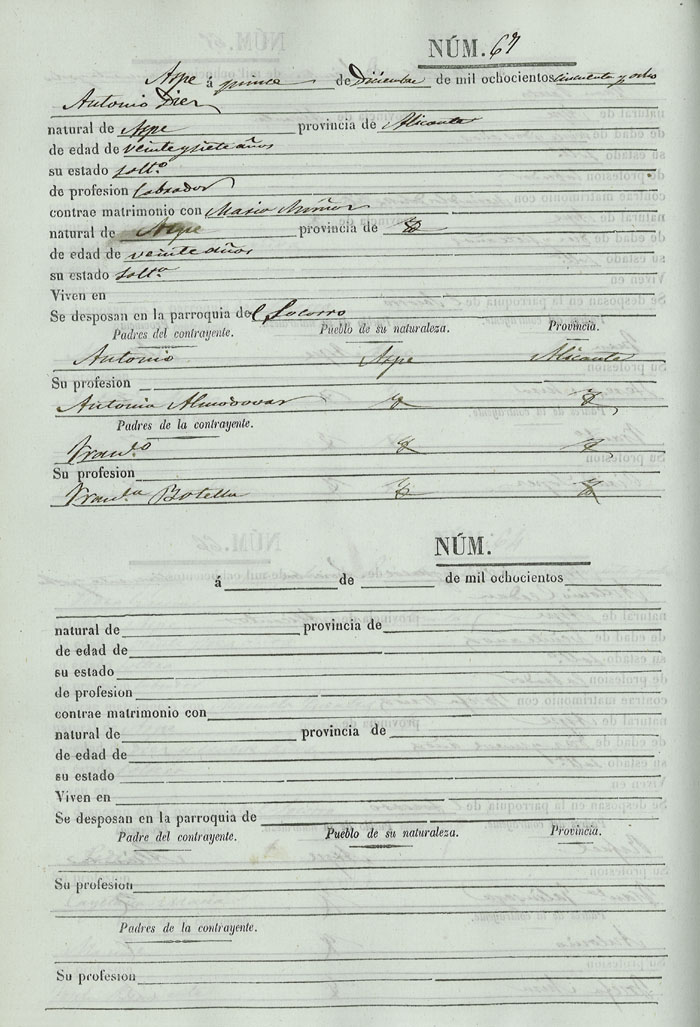 NÚM. 67
Aspe á quince de Diciembre de mil ochocientos cincuenta y ocho
Antonio Diez
natural de Aspe provincia de Alicante
de edad de veinte y siete años
su estado solt.º
de profesion Labrador
contrae matrimonio con Maria Muñoz
natural de Aspe provincia de
de edad de veinte años
su estado solt.ª
Viven en
Se desposan en la parroquia del Socorro
Padres del contrayente. Pueblo de su naturaleza. Provincia.
Antonio Aspe Alicante
Su profesion
Antonia Almodovar
Padres de la contrayente.
Fran.co
Su profesion
Fran.ca Botella
NÚM.
á de de mil ochocientos
natural de provincia de
de edad de
su estado
de profesion
contrae matrimonio con
natural de provincia de
de edad de
su estado
Viven en
Se desposan en la parroquia de
Padre del contrayente. Pueblo de su naturaleza. Provincia.
Su profesion
Padres de la contrayente.
Su profesion